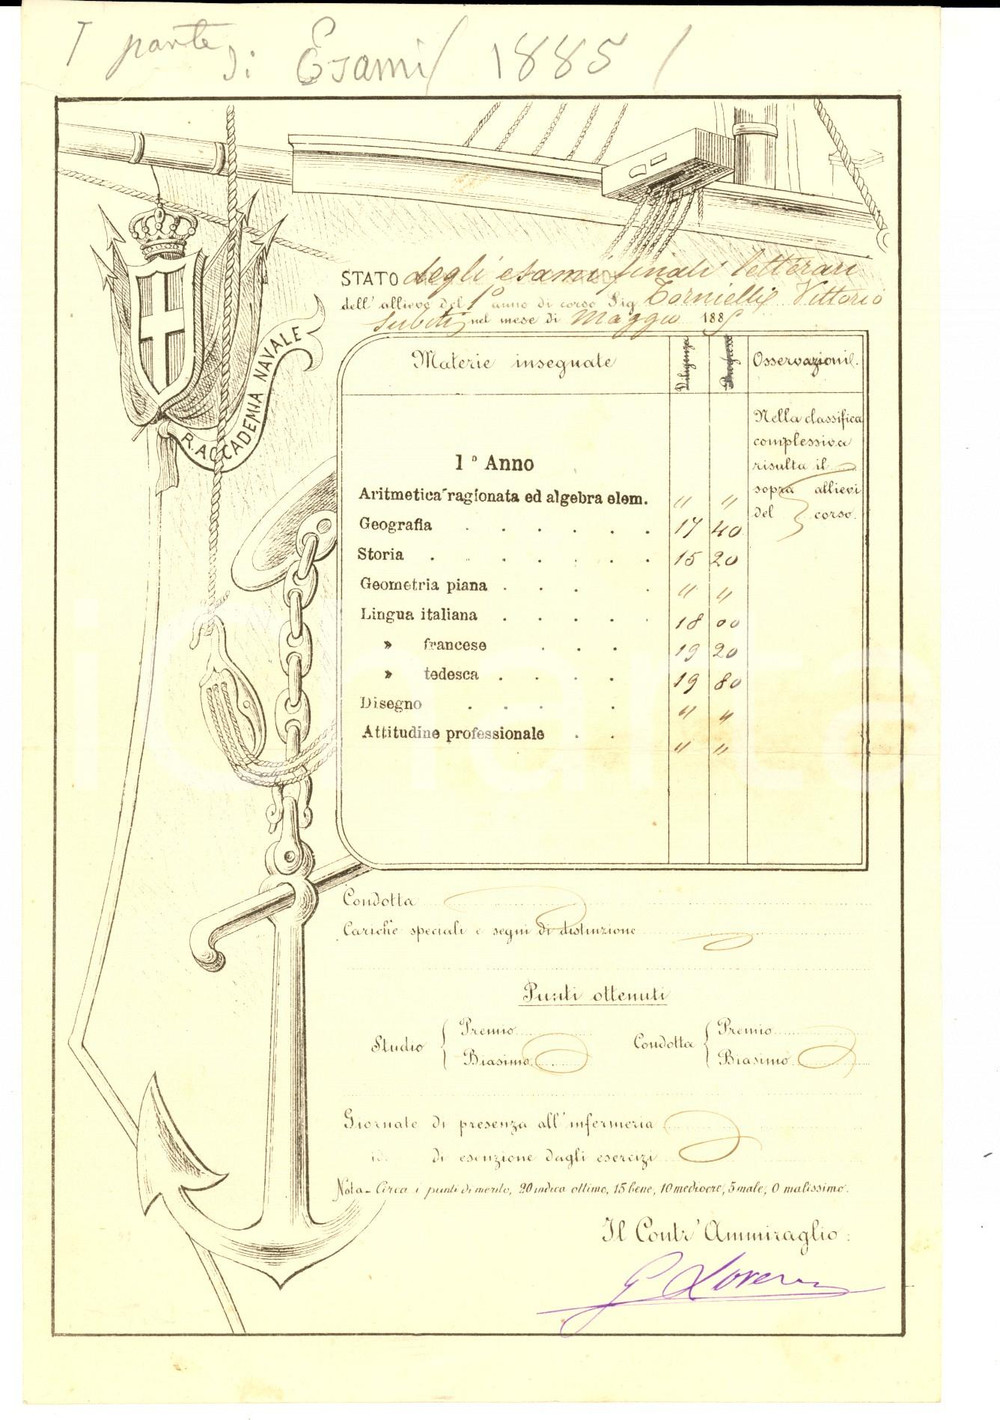 I parte di Esami 1885
R. ACCADEMIA NAVALE
STATO degli esami finali letterari
dell'allievo del 1° anno di corso Sig. Tornielli Vittorio
subiti nel mese di Maggio 1885
Materie insegnate Diligenza Progresso Osservazioni.
Nella classifica
complessiva
risulta il
sopra allievi
del corso.
1° Anno
Aritmetica ragionata ed algebra elem. " "
Geografia . . . . . . 17 40
Storia . . . . . . 15 20
Geometria piana . . . . " "
Lingua italiana . . . . . 18 00
» francese . . . 19 20
» tedesca . . . . 19 80
Disegno . . . . " "
Attitudine professionale . . " "
Condotta
Cariche speciali e segni di distinzione
Punti ottenuti
Studio { Premio Condotta { Premio
Biasimo Biasimo
Giornate di presenza all'infermeria
id. di esenzione dagli esercizi
Nota - Circa i punti di merito, 20 indica ottimo, 15 bene, 10 mediocre, 5 male, 0 malissimo.
Il Contr'Ammiraglio: